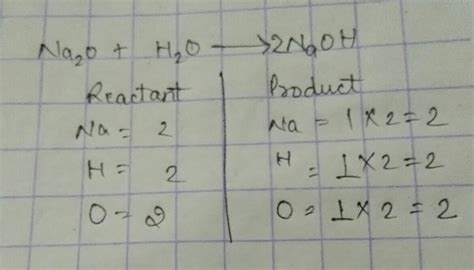 Na₂O + H₂O ⟶ 2NaOH
Reactant | Product
Na = 2 | Na = 1 × 2 = 2
H = 2 | H = 1 × 2 = 2
O = 2 | O = 1 × 2 = 2